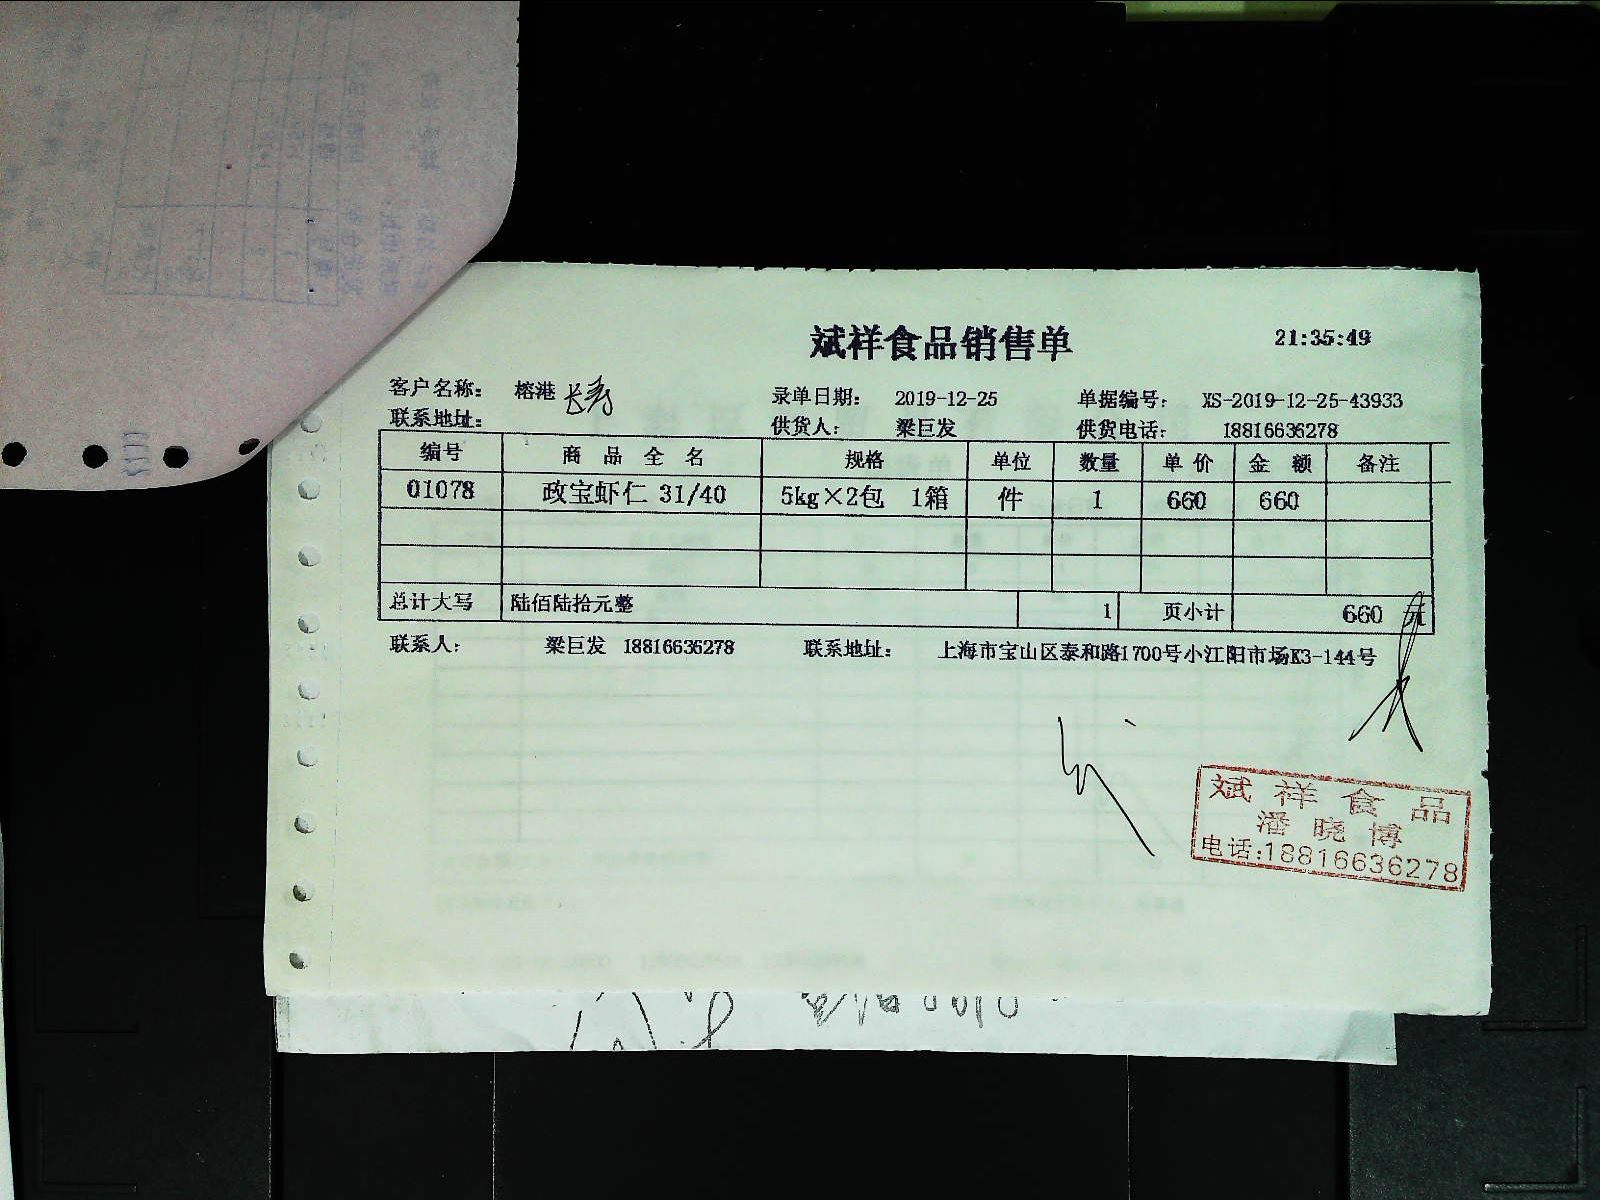 斌祥食品销售单 21:35:49
客户名称： 榕港 长寿 录单日期： 2019-12-25 单据编号： XS-2019-12-25-43933
联系地址： 供货人： 梁巨发 供货电话： 18816636278
编号 商品全名 规格 单位 数量 单价 金额 备注
01078 政宝虾仁 31/40 5kg×2包 1箱 件 1 660 660
总计大写 陆佰陆拾元整 1 页小计 660 元
联系人： 梁巨发 18816636278 联系地址： 上海市宝山区泰和路1700号小江阳市场K3-144号
斌祥食品
潘晓博
电话:18816636278